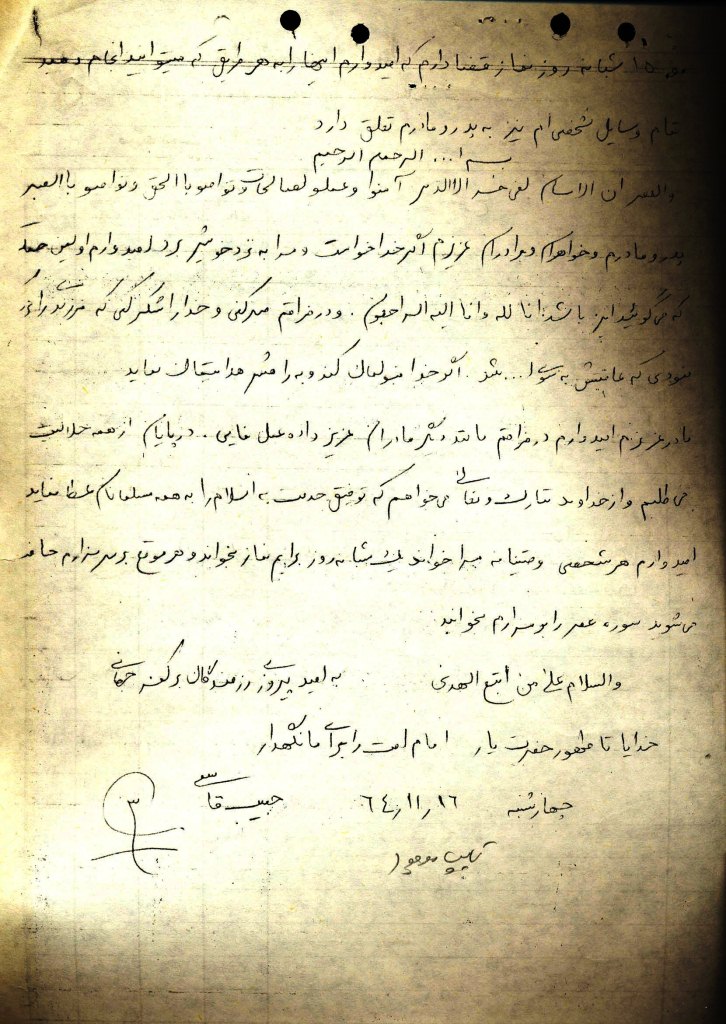 ۱۵ شبانه روز نماز قضا دارم که امیدوارم اینها را به هر طریق که میتوانید انجام دهید
تمام وسایل شخصی ام نیز به پدر و مادرم تعلق دارد
بسم ا... الرحمن الرحیم
والعصر ان الانسان لفی خسر الا الذین آمنوا و عملو لصالحات وتواصو با الحق و تواصو با الصبر
پدر و مادرم و خواهران و برادران عزیزم اگر خدا خواست و مرا به نزد خویش برد امیدوارم اولین جمله
که می گوئید این باشد انا لله و انا الیه الراجعون . و در فراقم صبر کنی و خدا را شکر کنی که فرزندی را بزرگ
نمودی که عاقبتش به سوی ا... شد . اگر خدا قبولمان کند و به راهش هدایتمان نماید
مادر عزیزم امیدوارم در فراقم مانند دیگر مادران عزیز داده عمل نمایی . در پایان از همه حلالیت
می طلبم و از خداوند تبارک و تعالی می خواهم که توفیق خدمت به اسلام را به همه مسلمانان عطا نماید
امیدوارم هر شخصی وصیتنامه مرا خواند یک شبانه روز برایم نماز بخواند و هر موقع بر سر مزارم حاضر
می شوید سوره عصر را بر مزارم بخوانید
والسلام علی من اتبع الهدی به امید پیروزی رزمندگان بر کفر جهانی
خدایا تا ظهور حضرت یار امام امت را برای ما نگهدار
چهارشنبه ۶۴٫۱۱٫۱۶ حبیب